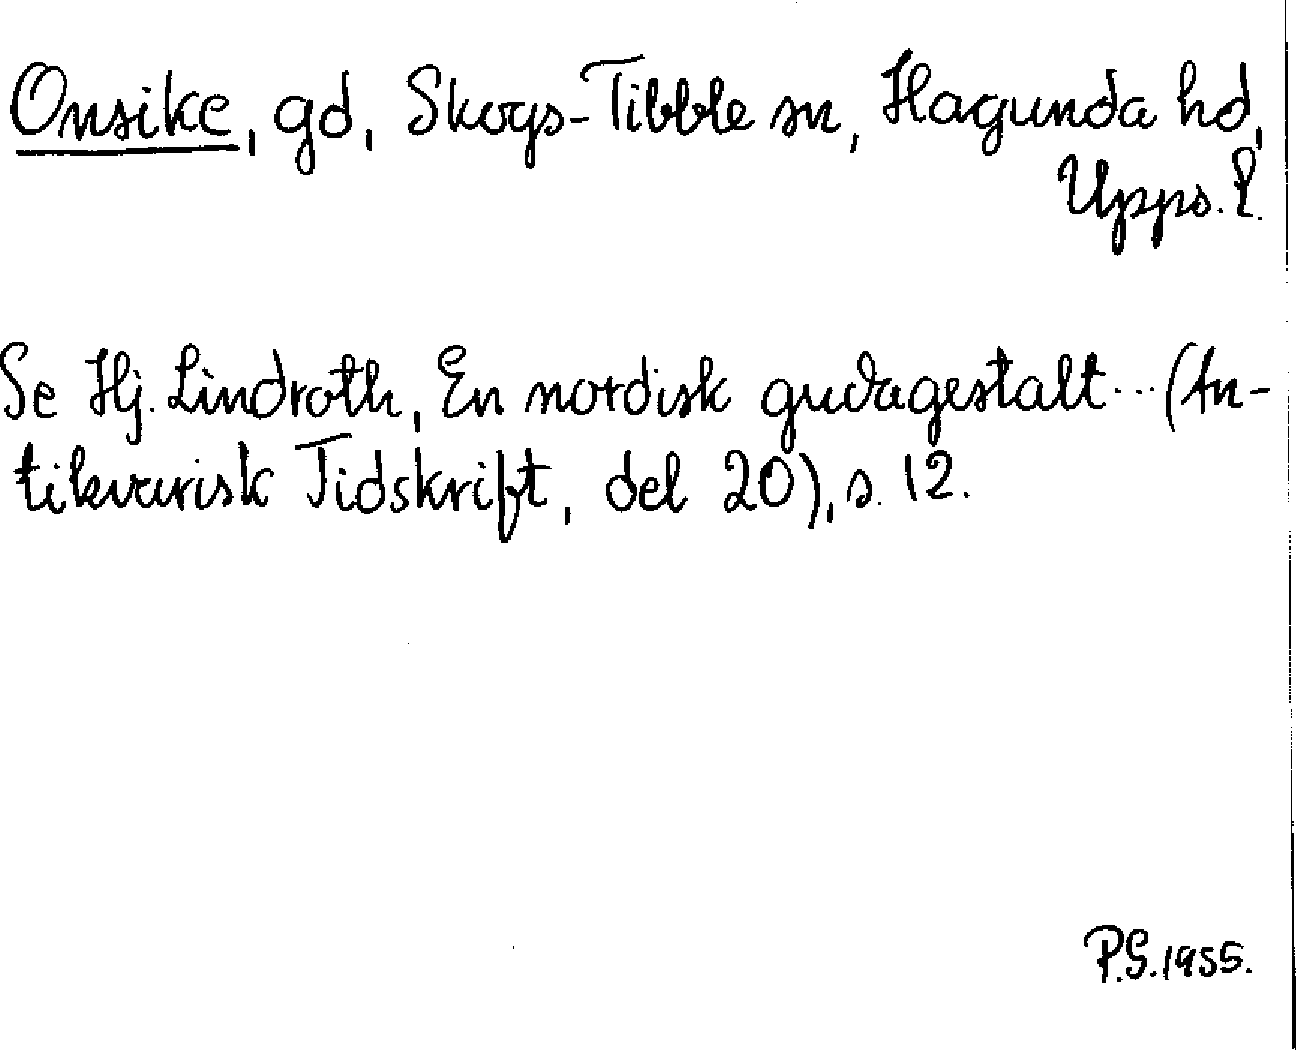 Onsike, gd, Skogs-Tibble sn, Hagunda hd,
Upps. l.
Se Hj. Lindroth, En nordisk gudagestalt... (An-
tikvarisk Tidskrift, del 20), s. 12.
P.S. 1955.